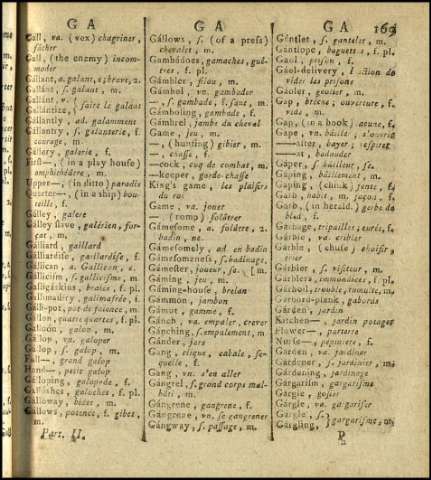 G A
G A
G A
169
Gall, va. (vox) chagriner,
fâcher
Gall, (the enemy) incommoder
Gallant, a. galant, s; brave, 2.
Gallánt, s. galant, m.
Gallánt, v.
Gallantize, faire le galant
Gállantly, ad. galamment
Gállantry, s. galanterie, f.
courage, m.
Gállery, galerie, f.
First—, (in a play house)
amphithéâtre, m.
Upper—, (in ditto) paradis
Quarter—, (in a ship) bouteille, f.
Gálley, galere
Gálley slave, galérien, forçat, m.
Gálliard, gaillard
Gálliardise, gaillardise, f.
Gállican, a. Gallican, e. 2.
Gállicism, s. gallicisme, m.
Galligáskins, braies, f. pl.
Gallimáufry, galimafrée, f.
Galli-pot, pot de faience, m.
Gállon, quatre quartes, f. pl.
Galloón, galon, m.
Gállop, va. galoper
Gállop, s. galop, m.
Full—, grand galop
Hand—, petit galop
Gálloping, galopade, f.
Gallóshes, galoches, f. pl.
Gálloway, bidet, m.
Gállows, potence, f. gibet,
m.
Part. II.
Gállows, s. (of a press)
chevalet, m.
Gambádoes, gamaches, guêtres, f. pl.
Gámbler, filou, m.
Gámbol, va. gambader
—, s. gambade, f. saut, m.
Gámboling, gambade, f.
Gámbrel, jambe du cheval
Game, jeu, m.
—, (hunting) gibier, m.
—, chasse, f.
—cock, coq de combat, m.
—keeper, garde-chasse
King's game, les plaisirs
du roi
Game, va. jouer
— (romp) folâtrer
Gámesome, a. folâtre, 2.
badin, ne.
Gámesomely, ad. en badin
Gámesomeness, s. badinage,
m.
Gámester, joueur, se.
Gáming, jeu, m.
Gáming-house, brelan
Gámmon, jambon
Gámut, gamme, f.
Ganch, va. empaler, crever
Gánching, s. empalement, m.
Gánder, jars
Gang, clique, cabale, sequelle, f.
Gang, vn. s'en aller
Gángrel, s. grand corps malbâti, m.
Gángrene, gangrene, f.
Gángrene, vn. se cangrener
Gángway, s. passage, m.
Gántlet, s. gantelet, m.
Gántlope, baguettes, f. pl.
Gaol, prison, f.
Gáol-delivery, l'action de
vider les prisons
Gáoler, geolier, m.
Gap, breche, ouverture, f.
vide, m.
Gap, (in a book) lacune, f.
Gape, vn. bâiller, s'ouvrir
—after, bayer, respirer
—at, badauder
Gáper, s. bâilleur, se.
Gáping, bâillement, m.
Gáping, (chink) fente, f.
Garb, habit, m. façon, f.
Garb, (in herald.) gerbe de
bled, f.
Gárbage, tripailles, curée, f.
Gárble, va. cribler
Gárble, (chuse) choisir,
trier
Gárbler, s. visiteur, m.
Gárbles, immondices, f. pl.
Gárboil, trouble, tumulte, m.
Gárboard-plank, gabords
Gárden, jardin
Kitchen—, jardin potager
Flower—, parterre
Nurse—, pépiniere, f.
Gárden, va. jardiner
Gárdener, s. jardinier, m.
Gárdening, jardinage
Gárgarism, gargarisme
Gárgle, gosier
Gárgle, va. gargariser
Gárgle, s.
Gárgling, gargarisme, m.
P